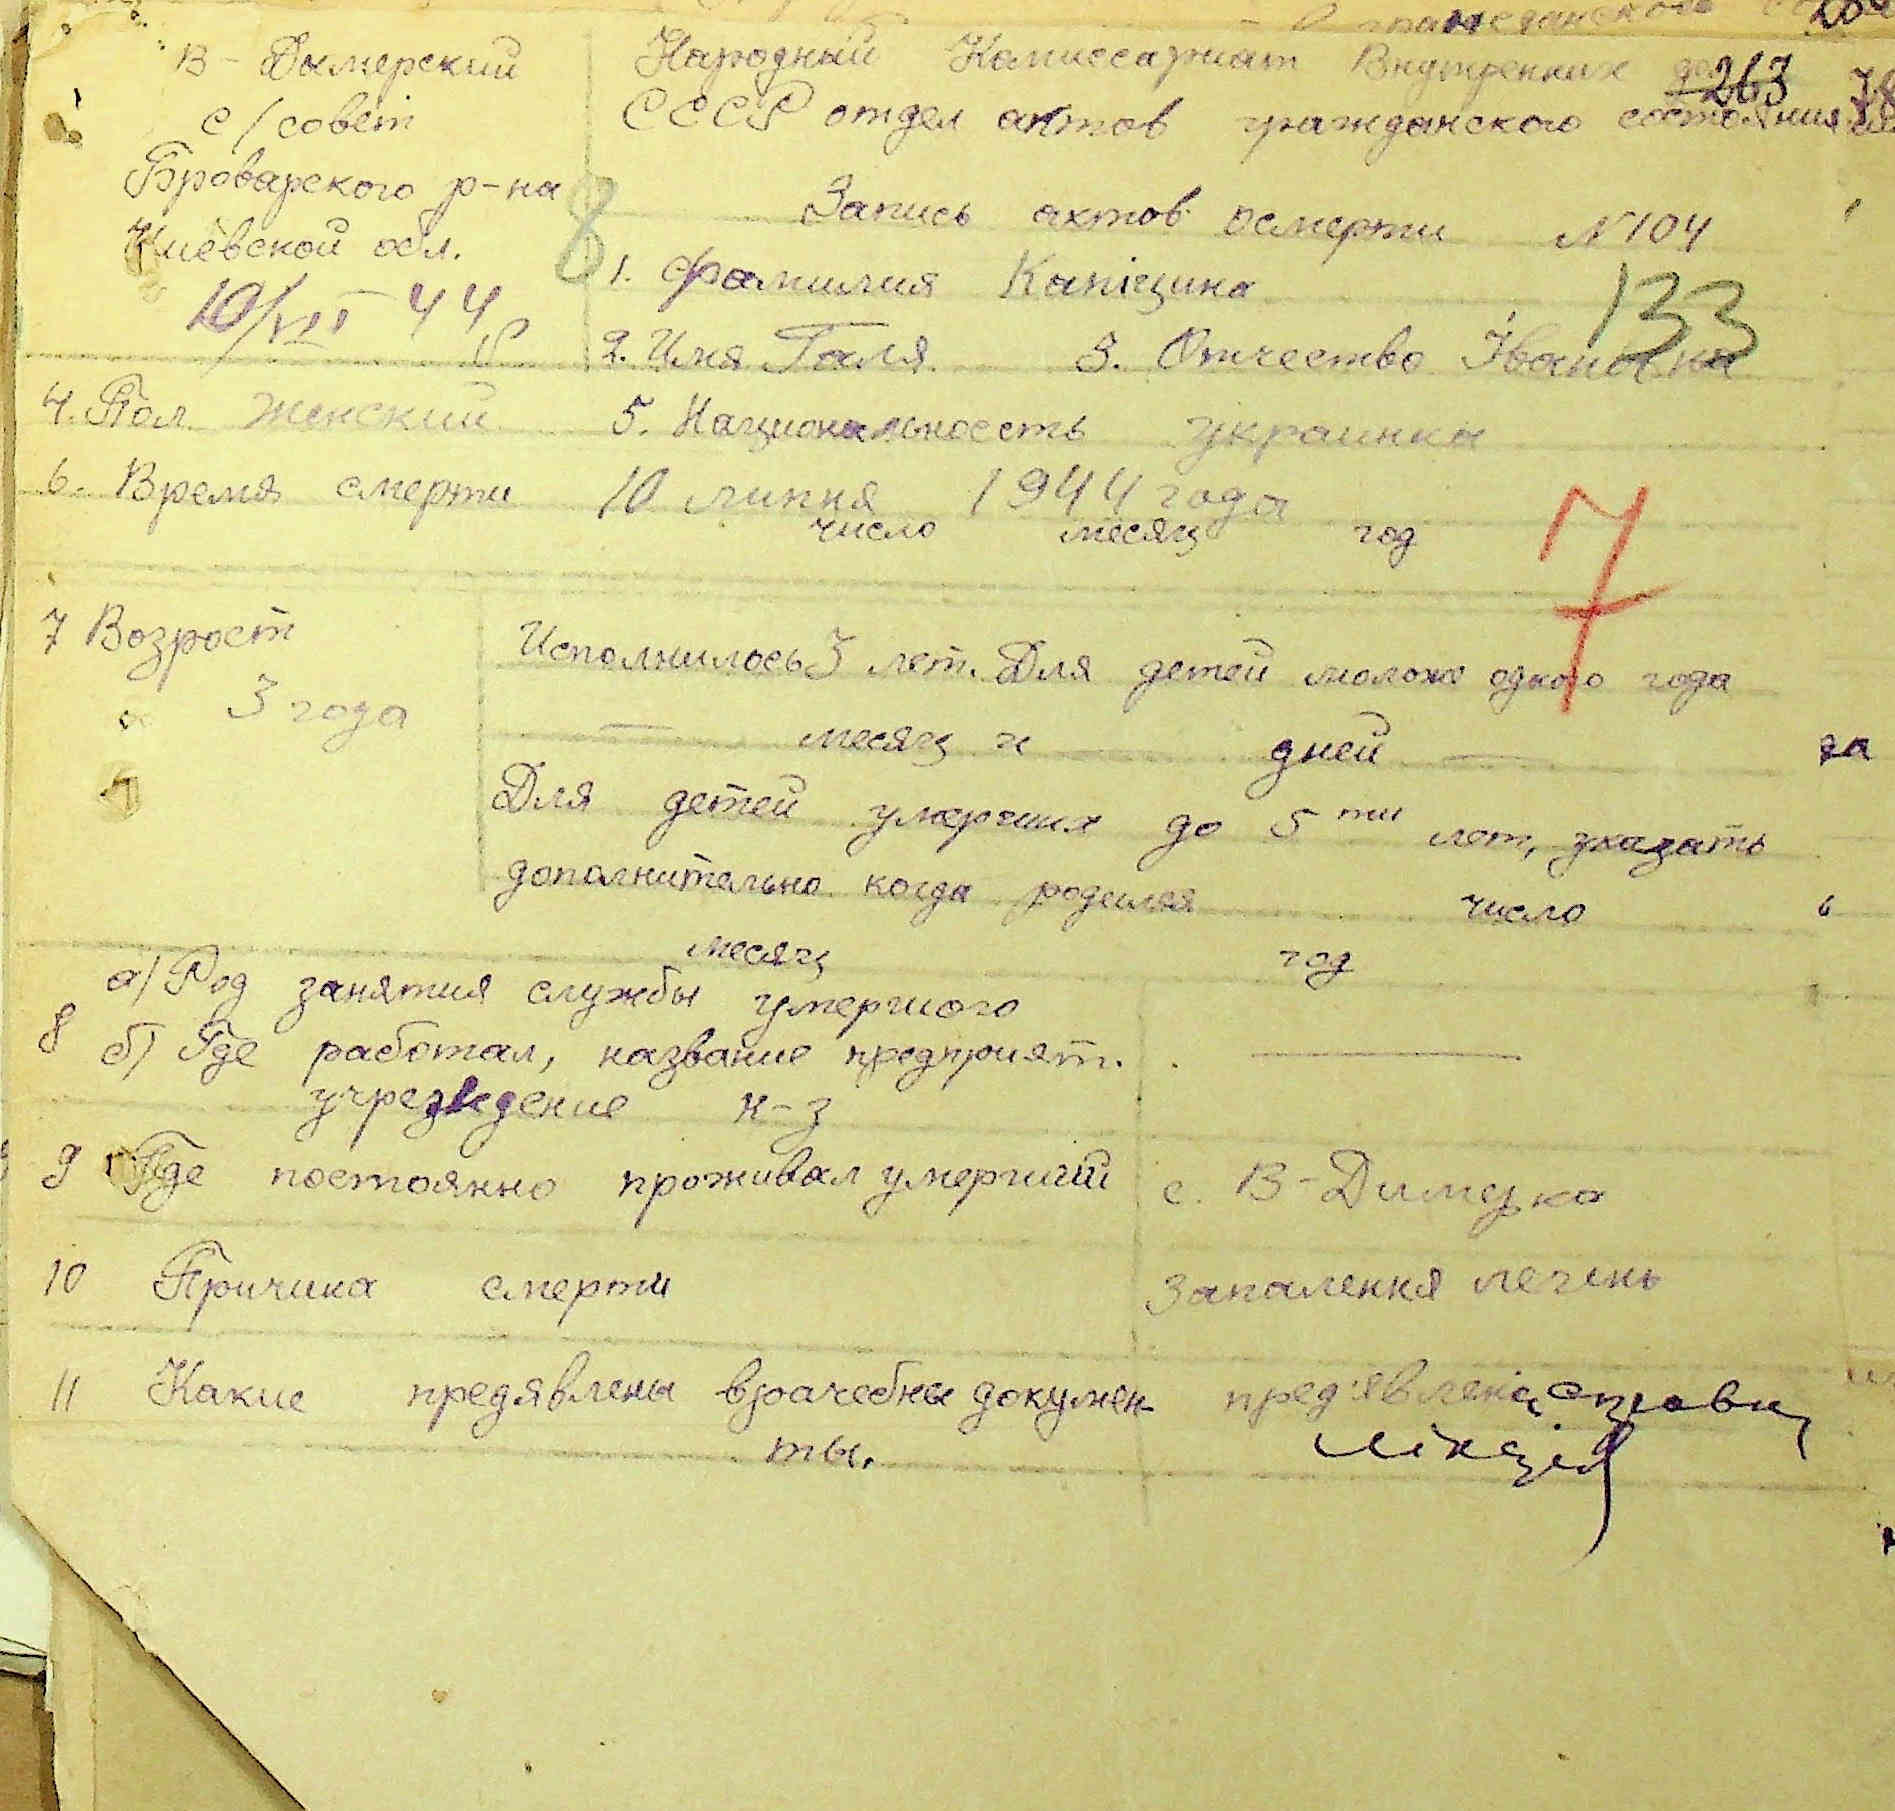 В-Дымерский
с/совет
Броварского р-на
Киевской обл.
10/VII 44
Народный Комиссариат Внутренних дел
263
СССР отдел актов гражданского состояния
Запись актов осмерти N 104
8
1. Фамилия Капіцина
133
2. Имя Галя 3. Отчество Івановна
4. Пол женский 5. Национальность украинка
6. Время смерти 10 липня 1944 года
число месяц год
7
7 Возрост
3 года
Исполнилось 3 лет. Для детей моложе одного года
— месяц и — дней —
Для детей умерших до 5 ти лет, указать
дополнительно когда родился число
месяц год
8 а) Род занятия службы умершого
б) Где работал, название предприят. —
учреждение к-з
9 Где постоянно проживал умерший с. В-Димерка
10 Причина смерти Запалення печень
11 Какие предявлены врачебные докумен-
ты.
пред'явлена справка